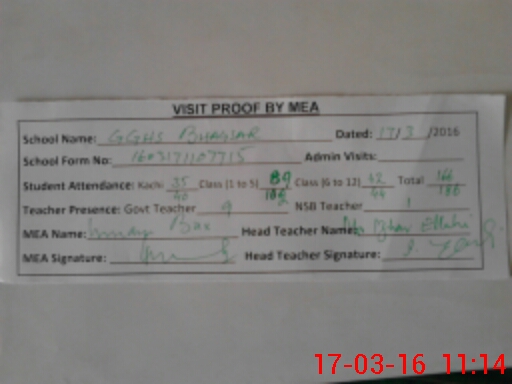 VISIT PROOF BY MEA
School Name: GGHS BHAGSAR Dated: 17/3/2016
School Form No: Admin Visits:
Student Attendance: Kachi 35/40 Class (1 to 5) 89 Class (6 to 12) 42/44 Total 166/186
Teacher Presence: Govt Teacher 9 NSB Teacher 1
MEA Name: Bax Head Teacher Name:
MEA Signature: Head Teacher Signature:
17-03-16 11:14